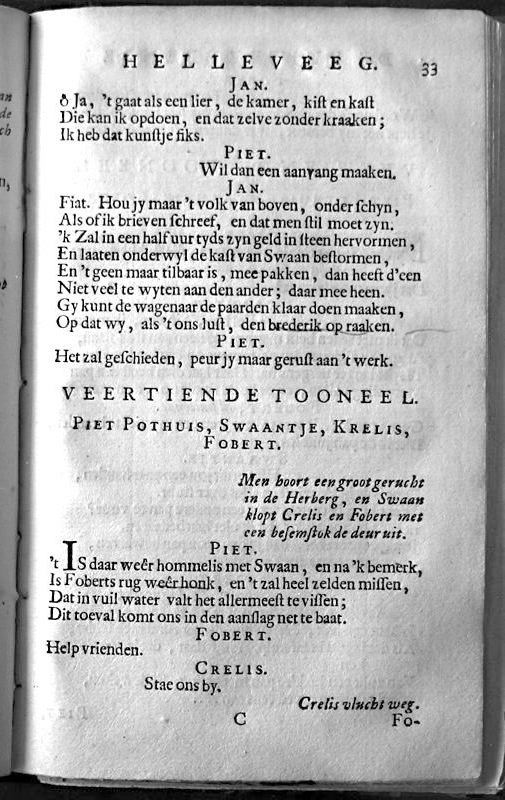 HELLEVEEG. 33
JAN.
ô Ja, 't gaat als een lier, de kamer, kist en kast
Die kan ik opdoen, en dat zelve zonder kraaken;
Ik heb dat kunstje fiks.
PIET.
Wil dan een aanvang maaken.
JAN.
Fiat. Hou jy maar 't volk van boven, onder schyn,
Als of ik brieven schreef, en dat men stil moet zyn.
'k Zal in een half uur tyds zyn geld in steen hervormen,
En laaten onderwyl de kast van Swaan bestormen,
En 't geen maar tilbaar is, mee pakken, dan heeft d'een
Niet veel te wyten aan den ander; daar mee heen.
Gy kunt de wagenaar de paarden klaar doen maaken,
Op dat wy, als 't ons lust, den brederik op raaken.
PIET.
Het zal geschieden, peur jy maar gerust aan 't werk.
VEERTIENDE TOONEEL.
PIET POTHUIS, SWAANTJE, KRELIS,
FOBERT.
Men hoort een groot gerucht
in de Herberg, en Swaan
klopt Crelis en Fobert met
een besemstok de deur uit.
PIET.
't IS daar weêr hommelis met Swaan, en na 'k bemerk,
Is Foberts rug weêr honk, en 't zal heel zelden missen,
Dat in vuil water valt het allermeest te vissen;
Dit toeval komt ons in den aanslag net te baat.
FOBERT.
Help vrienden.
CRELIS.
Stae ons by.
Crelis vlucht weg.
C Fo-